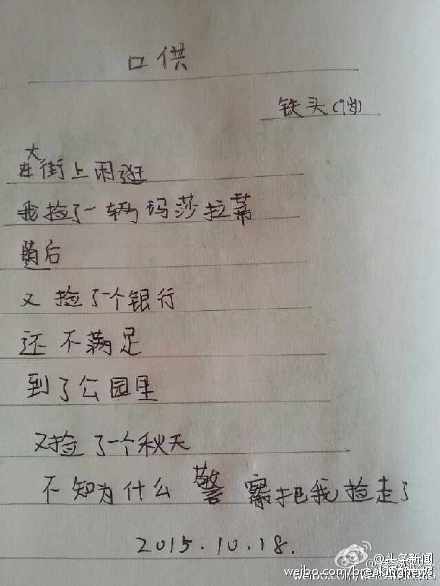 口供
铁头(9岁)
在大街上闲逛
我捡了一辆玛莎拉蒂
随后
又捡了个银行
还不满足
到了公园里
又捡了一个秋天
不知为什么警察把我捡走了
2015.10.18.
@头条新闻
weibo.com/breakingnews